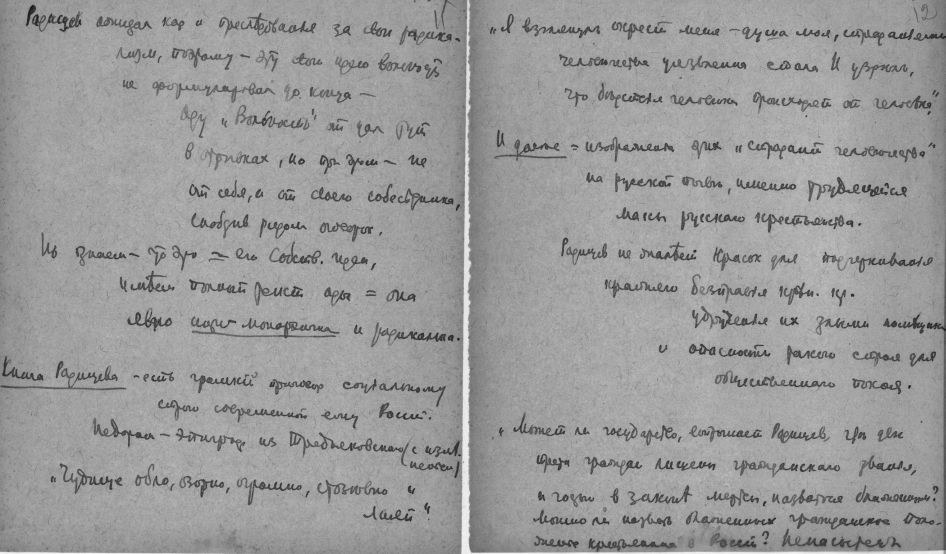 11
Радищев ожидал кар и преследованья за свой радика-
лизм, поэтому – эту свою идею вольности
не формулировал до конца –
Оду „Вольность" он дал тут
в отрывках, но при этом – не
от себя, а от своего собеседника,
снабдив рядом оговорок.
Но знаем – что это = его собств. идея,
имѣем полный текст оды = она
явно анти-монархична и радикальна.
Книга Радищева – есть громкий приговор социальному
строю современной ему России.
Недаром – эпиграф из Тредьяковского (с изм.
„Чудище обло, озорно, огромно, стозевно и
лаяй".
12
„Я взглянул окрест меня – душа моя, страданиями
человечества уязвленна стала. И узрел,
что бедствия человека происходят от человека",
И далее = изображения этих „страданий человечества"
на русской почве, именно трудящейся
массы русского крестьянства.
Радищев не жалѣет красок для подчеркиванья
крайняго безправья крѣп. кр.
угнетенья их злыми помещик.
и опасности такого строя для
общественного покоя.
„Может ли государство, вопрошает Радищев, где две
трети граждан лишены гражданского званья,
и частью в законѣ мертвы, назваться блаженным?
Можно ли назвать блаженным гражданское поло-
жение крестьянина в России? Ненасытец